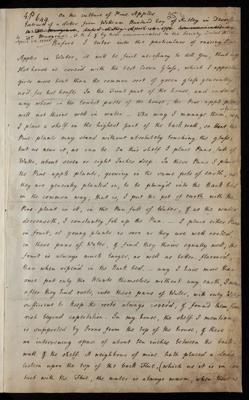 On the culture of Pine Apples
Extract of a letter from William Bastard Esq.
Before I enter into the particulars of raising Pine
Apples in Water, it will be first necessary to tell you, that my
Hothouse is covered with the best Crown Glass, which I apprehend
gives more heat than the common sort of green glass generally
used for hot houses. In the front part of the house, and indeed
any where in the lowest parts of the house, the Pine apple plants
will not thrive well in water. The way I manage them,
I place a shelf in the highest part of the back wall, so that the
Pine plants may stand without absolutely touching the glass,
but as near it, as can be. On this shelf I place Pans, full of
Water, about seven or eight Inches deep. In these Pans I place
the Pine apple plants, growing in the same pots of earth, as
they are generally planted in, to be plunged into the Bark bed
in the common way, that is, I put the pot of earth, with the
Pine plant in it, in the Pan full of Water, & as the water
decreaseth, I constantly fill up the Pan. I place either Plants
in fruit, or young plants as soon as they are well rooted,
in these pans of Water, & find they thrive equally well, the
fruit is always much larger, as well as better flavored,
than when ripened in the Bark bed. I have more than
once put only the Plants themselves without any earth, I mean
after they had roots, into these pans of Water, with only water
sufficient to keep the roots always covered, & found them flou-
rish beyond expectation. In my house, the shelf I mention
is supported by Irons from the top of the house, & there
an intervening space of about ten inches between the back
wall & the shelf. A neighbour of mine, hath placed a leaden
cistern upon the top of the back Flue, (which as it is in con-
tact with the Flue, the water is always warm, when there is